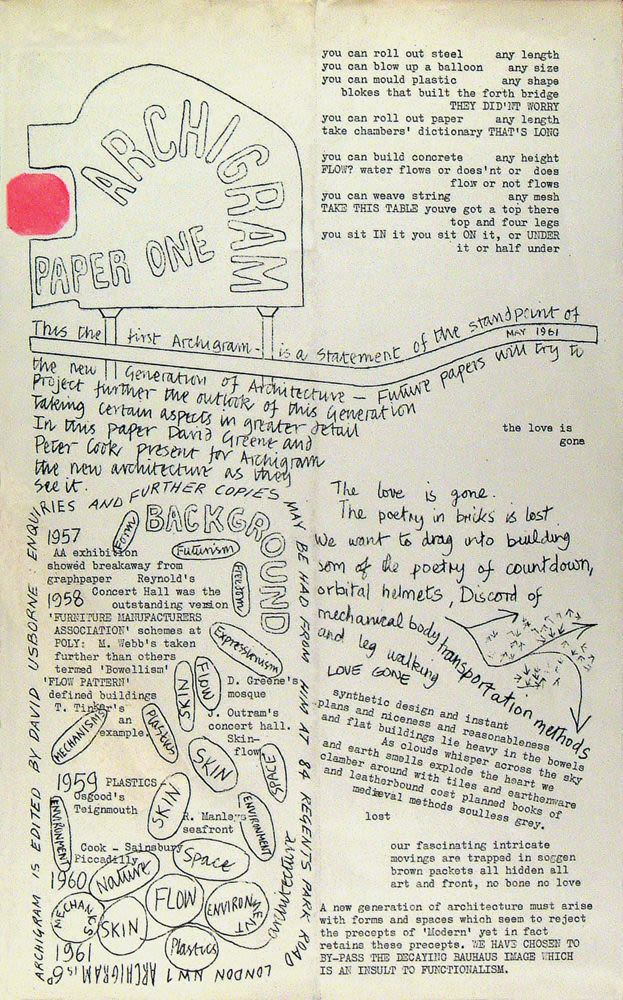 ARCHIGRAM
PAPER ONE
you can roll out steel any length
you can blow up a balloon any size
you can mould plastic any shape
blokes that built the forth bridge
THEY DID'NT WORRY
you can roll out paper any length
take chambers' dictionary THAT'S LONG
you can build concrete any height
FLOW? water flows or does'nt or does
flow or not flows
you can weave string any mesh
TAKE THIS TABLE youve got a top there
top and four legs
you sit IN it you sit ON it, or UNDER
it or half under
This the first Archigram - is a Statement of the standpoint of
MAY 1961
the new Generation of Architecture — Future papers will try to
Project further the outlook of this Generation
Taking certain aspects in greater detail
In this paper David Greene and
Peter Cook present for Archigram
the new architecture as they
see it.
the love is
gone
ARCHIGRAM IS EDITED BY DAVID USBORNE : ENQUIRIES AND FURTHER COPIES MAY BE HAD FROM HIM AT 84 REGENTS PARK ROAD
LONDON NW1
ARCHIGRAM is 6D
BACKGROUND
Form
1957
Futurism
AA exhibition
showed breakaway from
graphpaper Reynold's
Freedom
1958 Concert Hall was the
outstanding version
'FURNITURE MANUFACTURERS
ASSOCIATION' schemes at
POLY: M. Webb's taken
further than others
termed 'Bowellism'
Expressionism
'FLOW PATTERN'
defined buildings
SKIN
FLOW
D. Greene's
mosque
T. Tinker's
an
example.
MECHANISMS
Plastics
J. Outram's
concert hall.
Skin-
flow
SKIN
SPACE
1959 PLASTICS
Osgood's
Teignmouth
SKIN
ENVIRONMENT
R. Manley's
seafront
ENVIRONMENT
Cook - Sainsbury
Piccadilly
Space
architecture
1960
Nature
FLOW
ENVIRONMENT
MECHANICS
SKIN
Plastics
1961
The love is gone.
The poetry in bricks is lost.
We want to drag into building
som of the poetry of countdown,
orbital helmets, Discord of
mechanical body transportation methods
and leg walking
LOVE GONE
synthetic design and instant
plans and niceness and reasonableness
and flat buildings lie heavy in the bowels
As clouds whisper across the sky
and earth smells explode the heart we
clamber around with tiles and earthenware
and leatherbound cost planned books of
mediæval methods soulless grey.
lost
our fascinating intricate
movings are trapped in soggen
brown packets all hidden all
art and front, no bone no love
A new generation of architecture must arise
with forms and spaces which seem to reject
the precepts of 'Modern' yet in fact
retains these precepts. WE HAVE CHOSEN TO
BY-PASS THE DECAYING BAUHAUS IMAGE WHICH
IS AN INSULT TO FUNCTIONALISM.